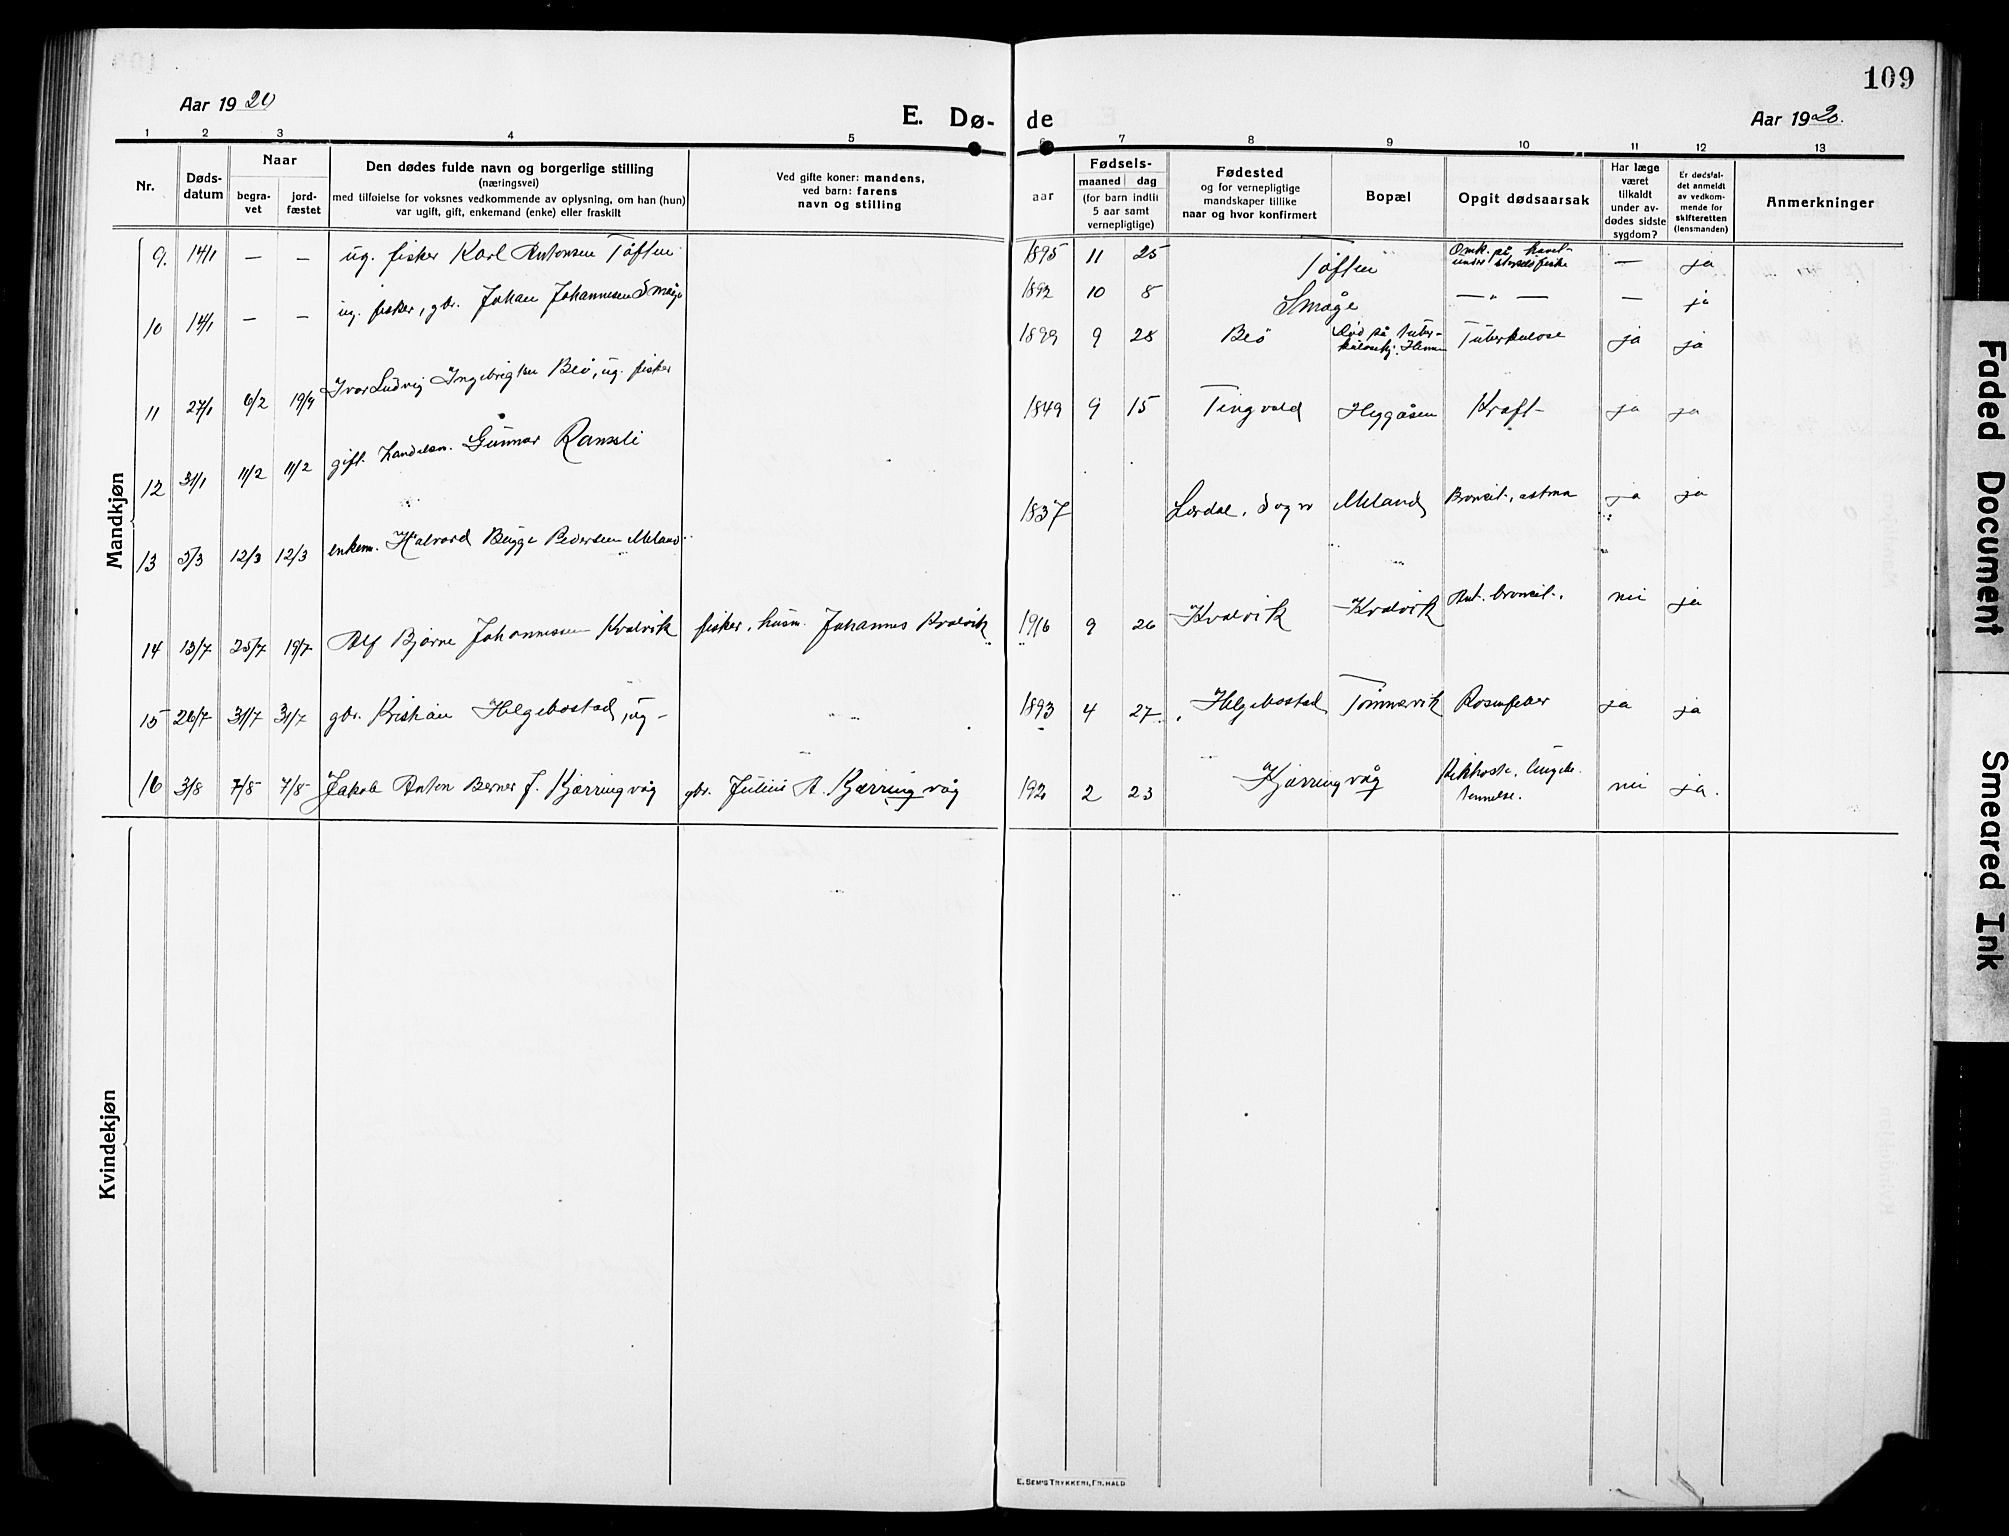 109
Aar 1920
E. Dø- de
Aar 1920.
1 2 3 4 5 6 7 8 9 10 11 12 13
Nr.
Døds-
datum
Naar
begra-
vet
jord-
fæstet
Den dødes fulde navn og borgerlige stilling
(næringsvei)
med tilføielse for voksnes vedkommende av oplysning, om han (hun)
var ugift, gift, enkemand (enke) eller fraskilt
Ved gifte koner: mandens,
ved barn: farens
navn og stilling
Fødsels-
aar
maaned dag
(for barn indtil
5 aar samt
vernepligtige)
Fødested
og for vernepligtige
mandskaper tillike
naar og hvor konfirmert
Bopæl
Opgit dødsaarsak
Har læge
været
tilkaldt
under av-
dødes sidste
sygdom?
Er dødsfal-
det anmeldt
av vedkom-
mende for
skifteretten
(lensmanden)
Anmerkninger
Mandkjøn
9. 14/1 — — ug. fisker Karl Antonsen Tøften 1895 11 25 Tøften Omk. på havet
under — ja
10 14/1 — — ug. fisker, gbr. Johan Johannesen Småge 1892 10 8 Småge — " — — ja
11 27/1 6/2 19/9 Ivar Ludvig Ingebrigtsen Beø, ug. fisker 1899 9 28 Beø Død på tuber-
Tuberkulose ja ja
12 31/1 11/2 11/2 gift. handelsm. Gunnar Ramsli 1849 9 15 Tingvold Heggåsen Kræft ja ja
13 5/3 12/3 12/3 enkem. Halvard Bugge Pedersen Meland 1837 Lærdal, Sogn Meland Bronkit, astma ja ja
14 13/7 25/7 19/7 Alf Bjarne Johannessen Kvalvik fisker, husm. Johannes Kvalvik 1916 9 26 Kvalvik Kvalvik Akut. bronkit. nei ja
15 26/7 31/7 31/7 gbr. Kristian Helgebostad, ug. 1893 4 27 Helgebostad Tømmervik Rosenfeber ja ja
16 3/8 7/8 7/8 Jakob Anton Berner J. Kjærringvåg gbr. Julius A. Kjærringvåg 1920 2 23 Kjærringvåg Kikhoste, lungebe-
tennelse. nei ja.
Kvindekjøn
E. SEM'S TRYKKERI, FR.HALD
Faded Document
Smeared Ink